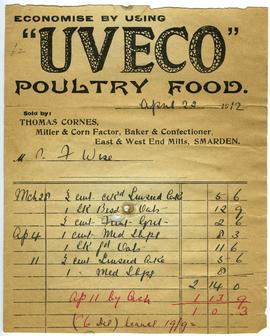 ECONOMISE BY USING
"UVECO"
POULTRY FOOD.
April 22 1912
Sold by:
THOMAS CORNES,
Miller & Corn Factor, Baker & Confectioner,
East & West End Mills, SMARDEN.
F Wise
Mch 28 ½ cwt Linseed Cake 5 6
1 Sk Best Oats 12 9
½ cwt 2 6
Ap 4 1 cwt Med Shps 8 3
1 Sk Oats 11 6
11 ½ cwt Linseed Cake 5 6
1 " Med Shps 8
2 14 0
Ap 11 by Cash 1 13 9
1 0 3
(6 Dis) leaves 19/9